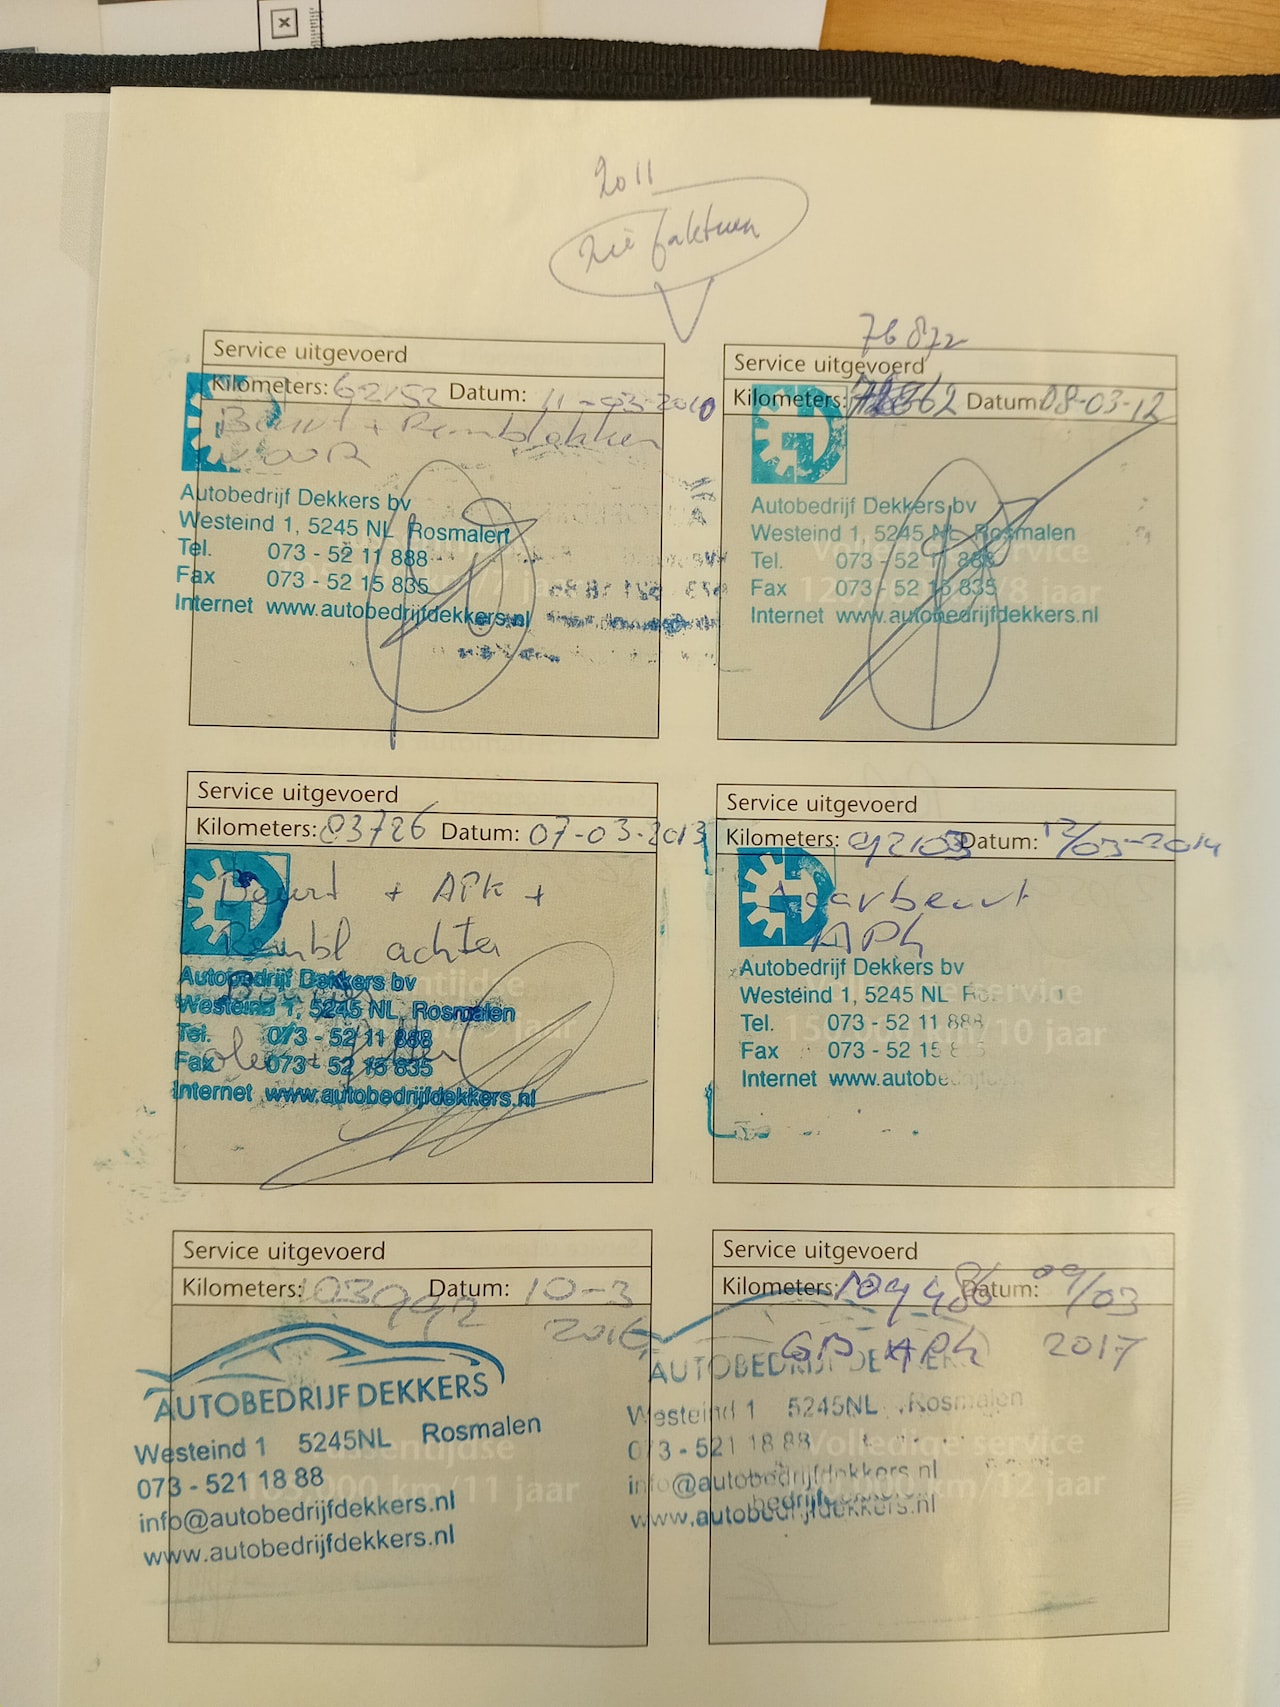 2011
zie fakturen
Service uitgevoerd
Kilometers: 62152 Datum: 11-03-2010
Beurt + Remblokken
VOOR
Autobedrijf Dekkers bv
Westeind 1, 5245 NL Rosmalen
Tel. 073 - 52 11 888
Fax 073 - 52 15 835
Internet www.autobedrijfdekkers.nl
76872
Service uitgevoerd
Kilometers: Datum: 08-03-12
Autobedrijf Dekkers bv
Westeind 1, 5245 NL Rosmalen
Tel. 073 - 52 11 888
Fax 073 - 52 15 835
Internet www.autobedrijfdekkers.nl
Volledige service
/8 jaar
Service uitgevoerd
Kilometers: 83726 Datum: 07-03-2013
Beurt + APK +
Rembl achter
Autobedrijf Dekkers bv
Westeind 1, 5245 NL Rosmalen
Tel. 073 - 52 11 888
Fax 073 - 52 15 835
Internet www.autobedrijfdekkers.nl
Service uitgevoerd
Kilometers: 92103 Datum: 12/03-2014
Jaarbeurt
APK
Autobedrijf Dekkers bv
Westeind 1, 5245 NL
Tel. 073 - 52 11 888
Fax 073 - 52 15
Internet www.autobe
service
/10 jaar
Service uitgevoerd
Kilometers: 103992 Datum: 10-3
2016
AUTOBEDRIJF DEKKERS
Westeind 1 5245NL Rosmalen
073 - 521 18 88
info@autobedrijfdekkers.nl
www.autobedrijfdekkers.nl
000 km/11 jaar
Service uitgevoerd
Kilometers: 109486 Datum: 09/03
GB APK 2017
AUTOBEDRIJF DEKKERS
Westeind 1 5245NL Rosmalen
073 - 521 18 88
info@autobedrijfdekkers.nl
www.autobedrijfdekkers.nl
Volledige service
km/12 jaar